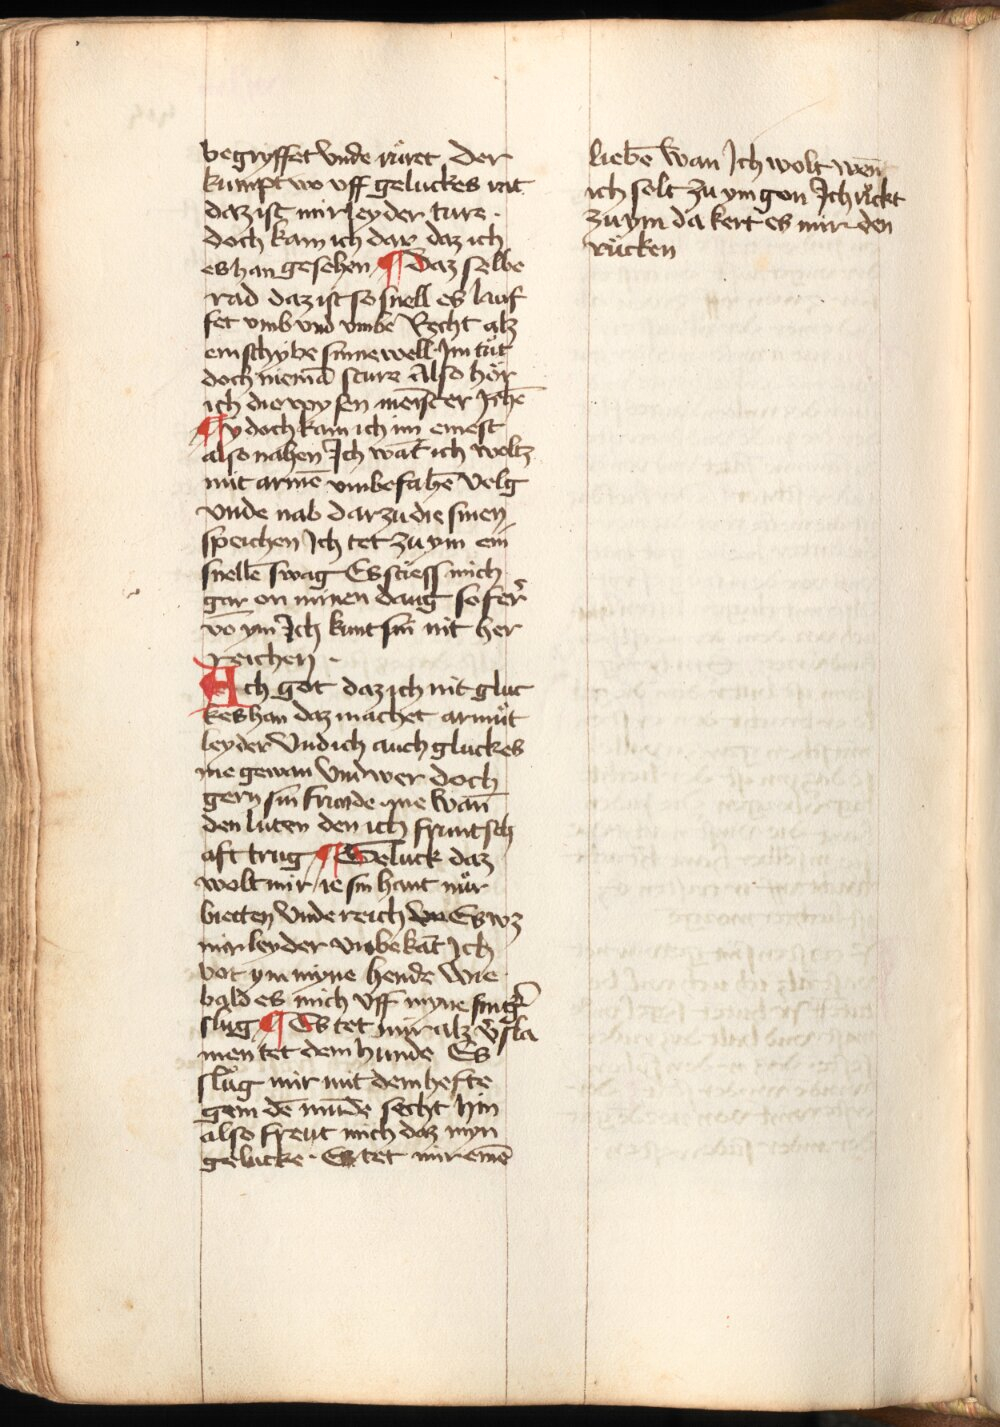 begryffet vnde ruͤret Der
kumpt wo vff geluckes rat
daz ist mir leyder ture ·
doch kam ich dar daz ich
es han gesehen ¶ Daz selbe
rad daz ist so snell es lauf
fet vmb vnd vmbe Recht alz
ein schybe sinnewell Im tuͤt
doch niemā sture Also hoͤr
ich die wysen meister Jehē
¶ ydoch kam ich im einest
also nahen Ich want ich woltz
mit armē vmbefahē Velg
vnde nab dar zu die sinen
speichen Ich tet zu ym ein
snellē swag Es stiess mich
gar on minen dang so ferr
vō ym Ich kunt sin nit her
reichen ·
Ach got daz ich nit gluc
kes han daz machet armuͦt
leyder Vnd ich auch gluckes
nie gewan Vnd wer doch
gern sin frunde · me wan̄
den luten den ich fruntsch
aft trug ¶ Geluck daz
wolt mir ie sin hant nuͦr
bietten Vnde reich Es wz
mir leyder vnbekāt Ich
bot ym myne hende Wie
bald es mich vff myne finger
slug ¶ Es tet mir alz v̓sla
men tet dem hunde Es
sluͦg mir mit dem hefte
gein dē munde secht hin
also freut mich daz myn
gelucke · Es tet mir einē
liebē wan Ich wolt wen̄
ich solt zu ym gon Ich ruͤckt
zu ym da kert es mir den
rücken